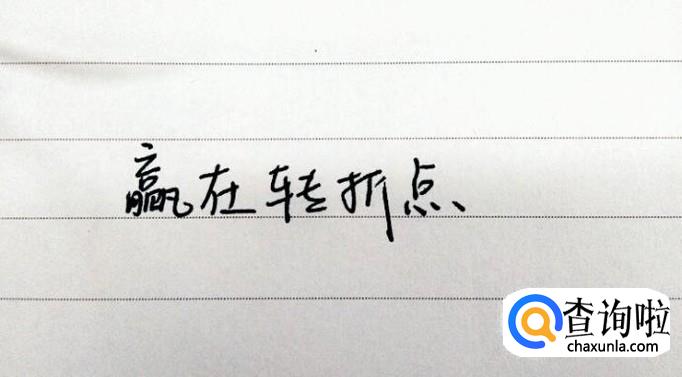 赢在转折点
查询啦
chaxunla.com